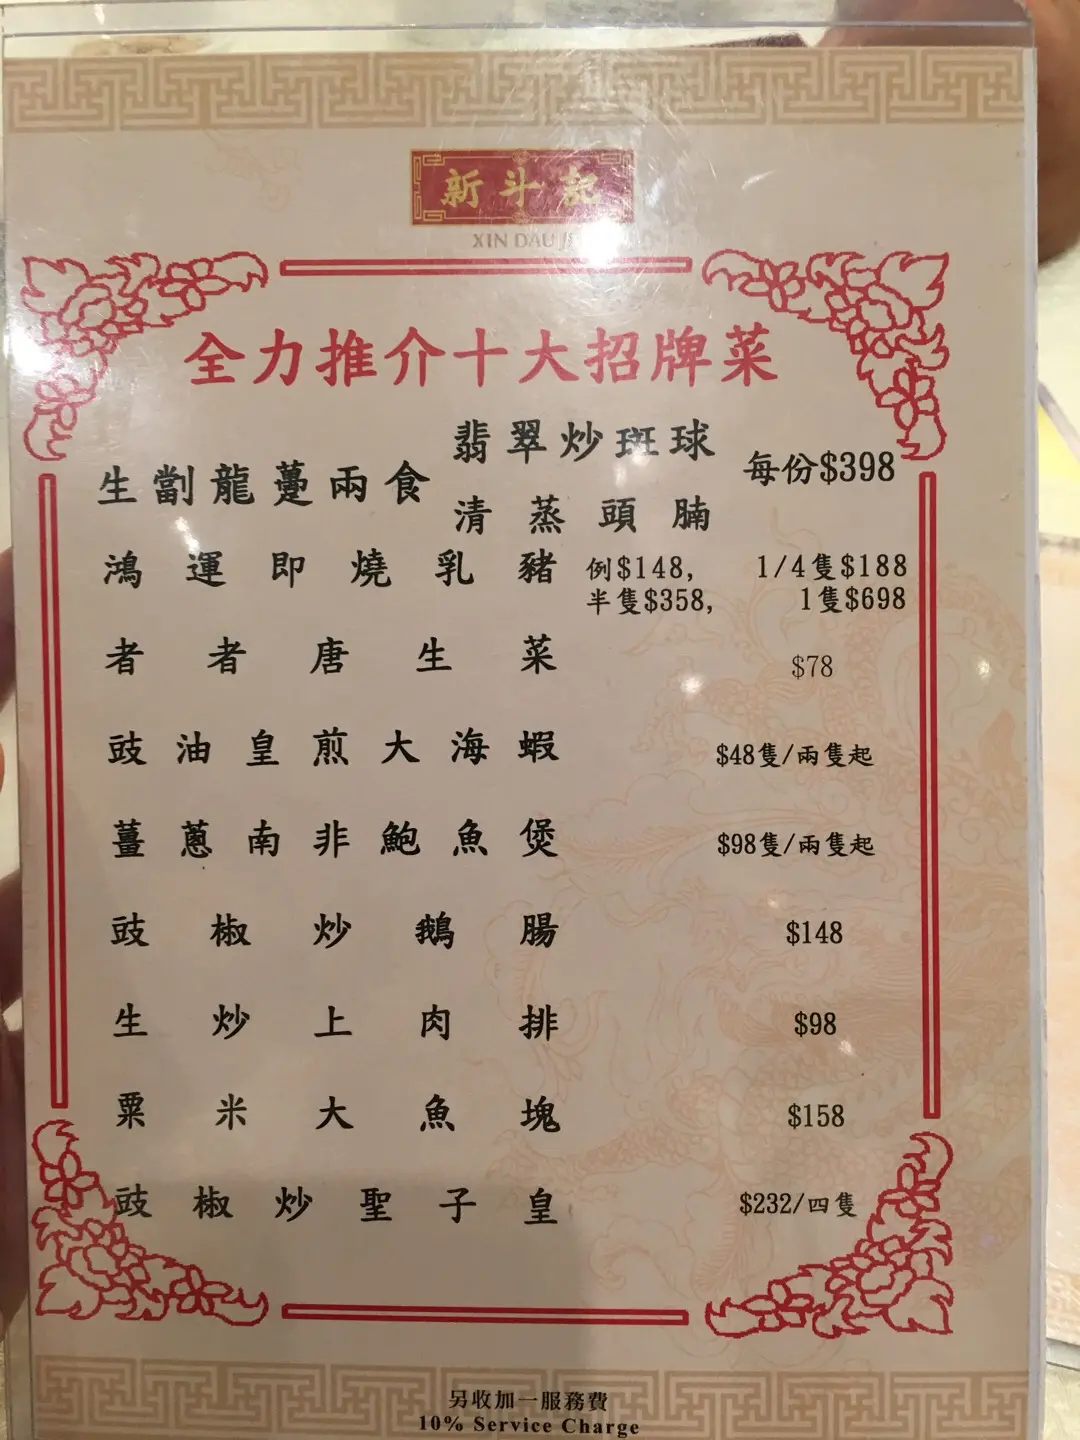 新斗記
XIN DAU
全力推介十大招牌菜
生劏龍躉兩食 翡翠炒斑球 清蒸頭腩 每份$398
鴻運即燒乳豬 例$148, 1/4隻$188
半隻$358, 1隻$698
者者唐生菜 $78
豉油皇煎大海蝦 $48隻/兩隻起
薑蔥南非鮑魚煲 $98隻/兩隻起
豉椒炒鵝腸 $148
生炒上肉排 $98
粟米大魚塊 $158
豉椒炒聖子皇 $232/四隻
另收加一服務費
10% Service Charge